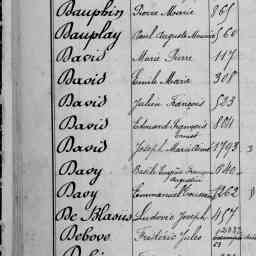 Dauphin Pierre Marie 865
Dauplay Paul Auguste Maurice 560
David Marie Pierre 117
David Emile Marie 308
David Julien François 503
David Edouard François Ernest 801
David Joseph Marie 1793 3
Davy Basile Eugène François Augustin 840
Davy Emmanuel 1262 8
De Blasus Ludovic Joseph 457
Debove Frédéric Jules